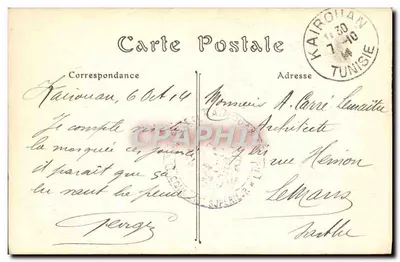 Carte Postale
KAIROUAN
11 30
7-10
14
TUNISIE
Correspondance
Adresse
Kairouan, 6 Oct 14
Je compte visiter
la mosquée ces jours-ci
il paraît que ça
en vaut la peine
George
Monsieur A. Carré Lemaître
Architecte
7 bis
rue Hémon
Le Mans
Sarthe
CARPHILA